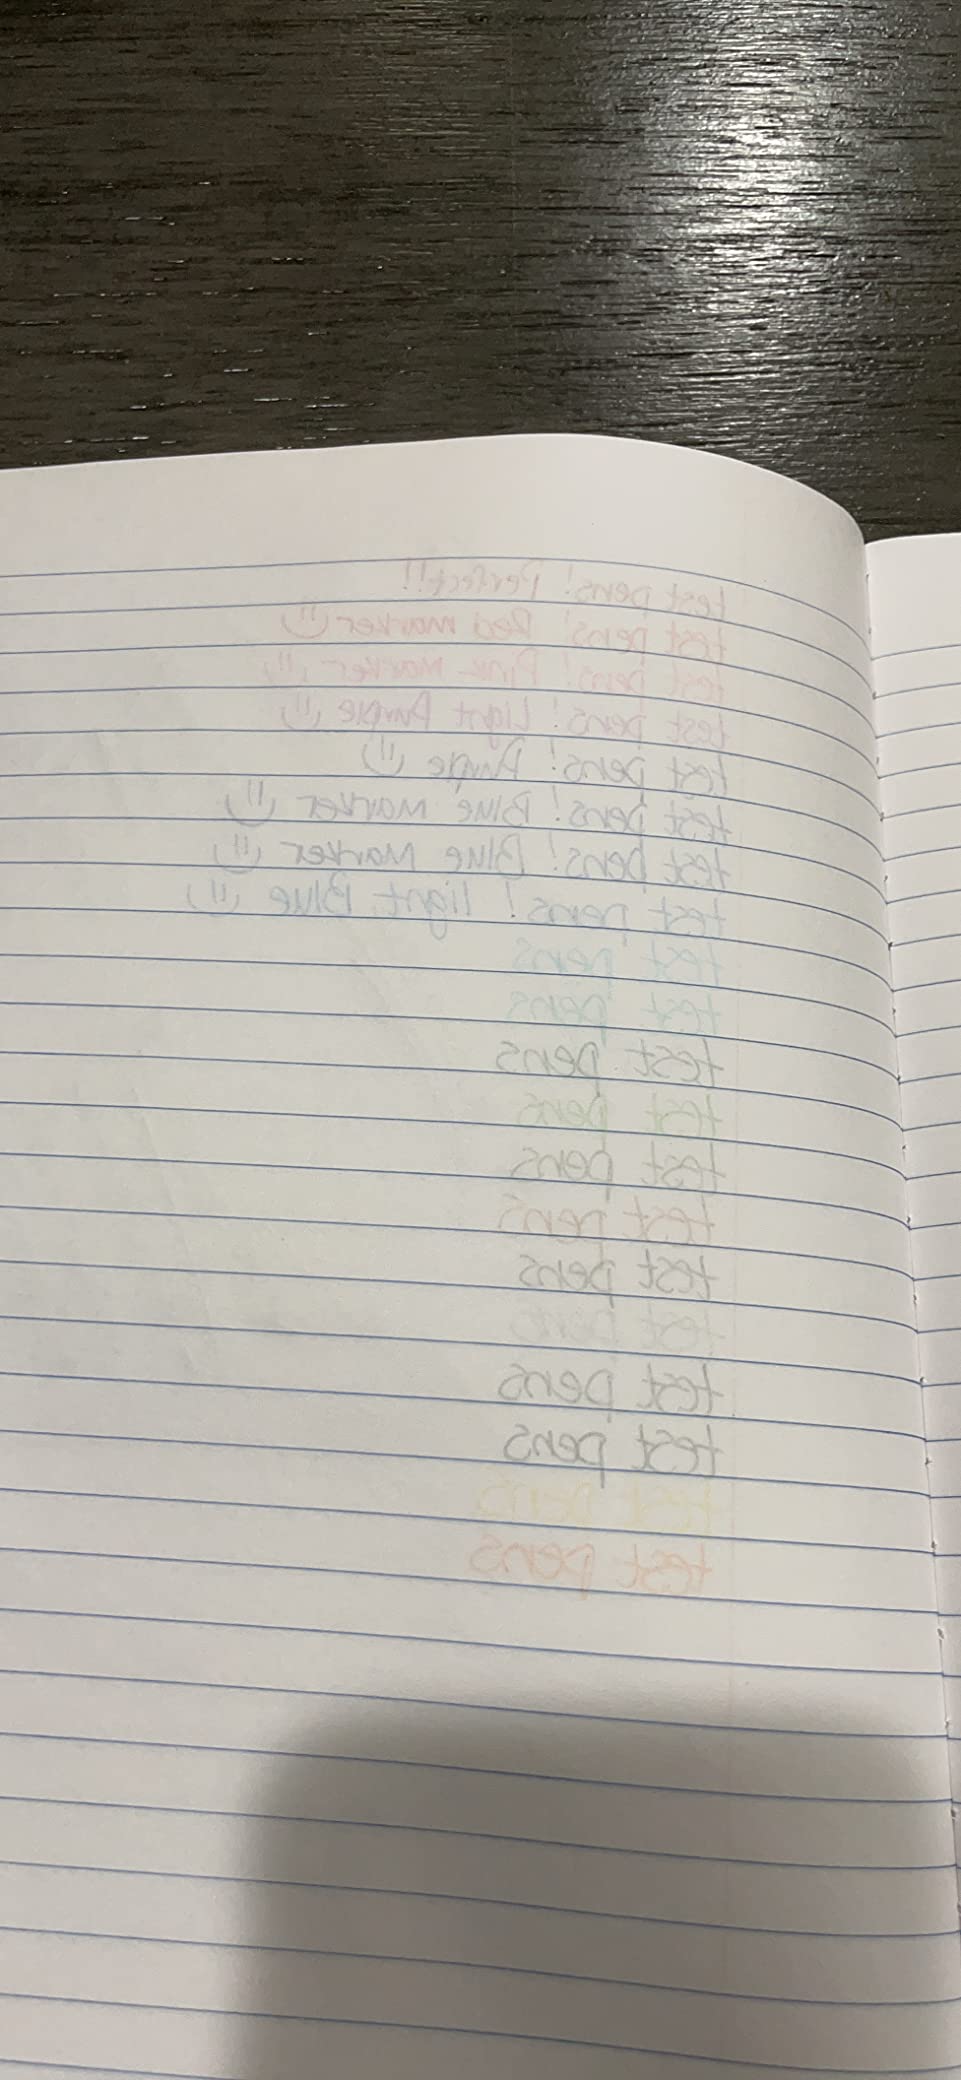 test pens! Perfect!!
test pens! Red marker
test pens! Pink marker
test pens! Light Purple
test pens! Purple
test pens! Blue marker
test pens! Blue marker
test pens! light Blue
test pens
test pens
test pens
test pens
test pens
test pens
test pens
test pens
test pens
test pens
test pens
test pens